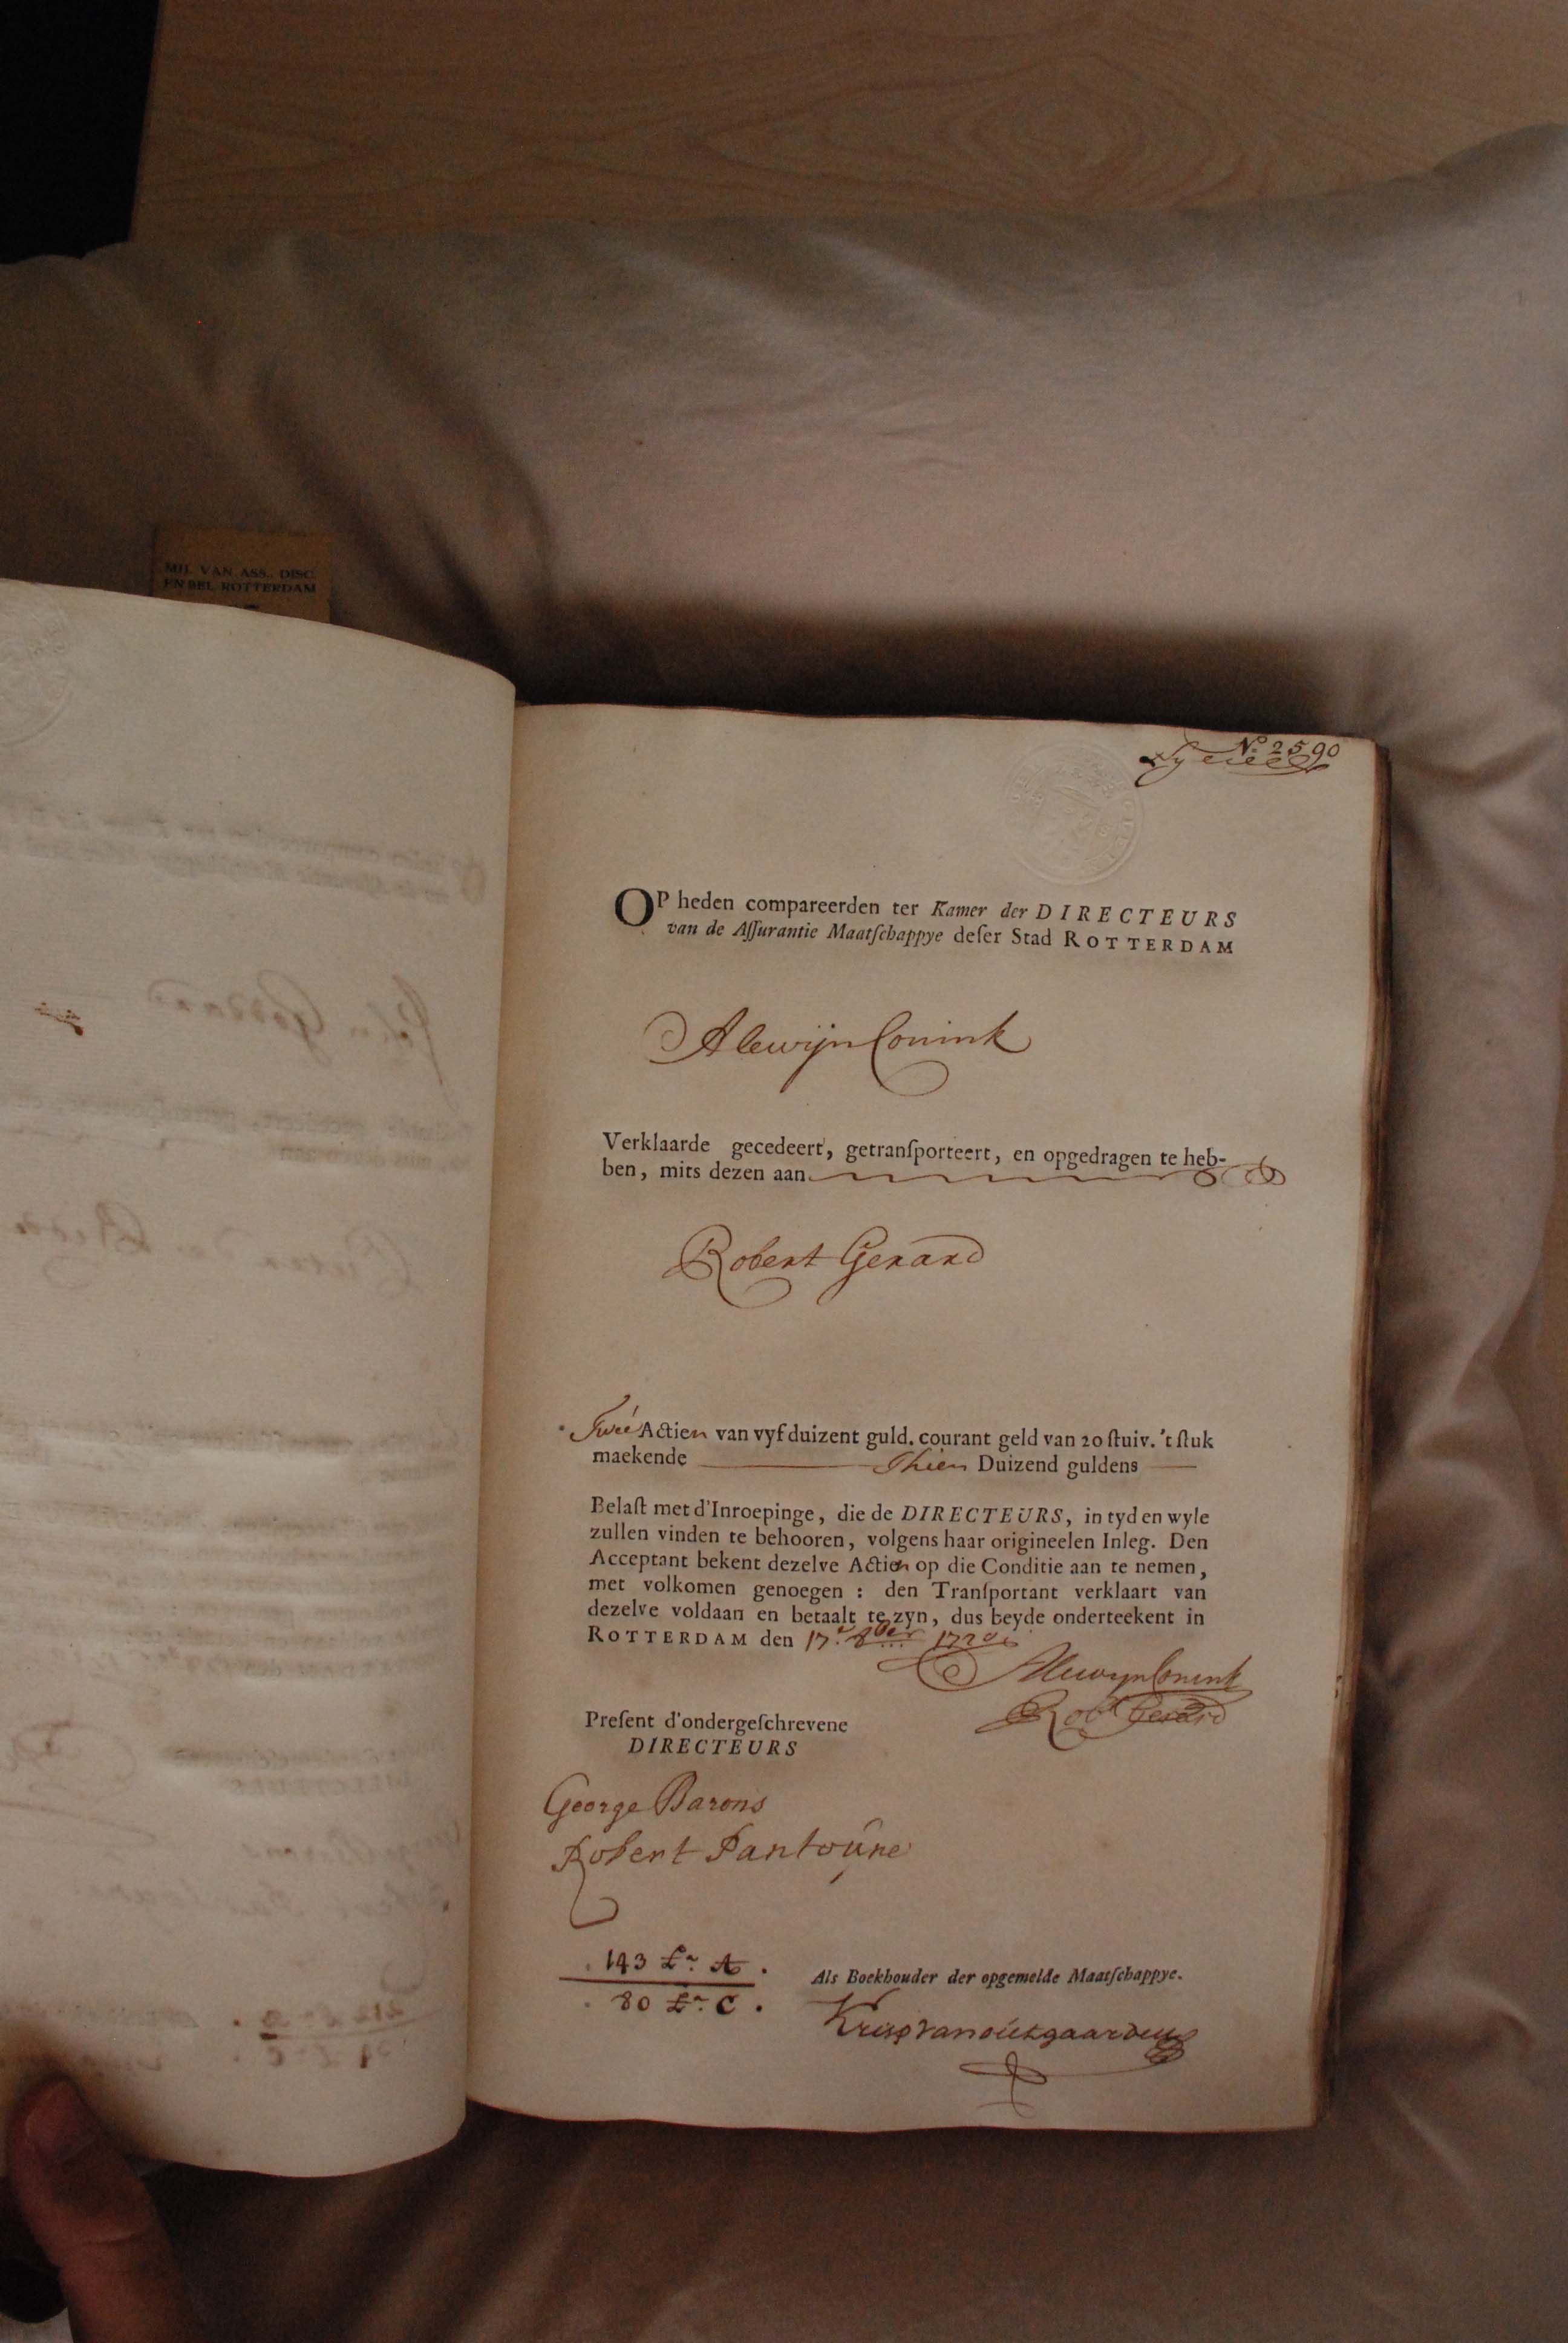 MIJ. VAN ASS., DISC.
EN BEL. ROTTERDAM
No. 2590
OP heden compareerden ter Kamer der DIRECTEURS
van de Aſſurantie Maatſchappye deſer Stad ROTTERDAM
Alewijn Conink
Verklaarde gecedeert, getranſporteert, en opgedragen te heb-
ben, mits dezen aan
Robert Gerard
Twee Actien van vyf duizent guld. courant geld van 20 ſtuiv. 't ſtuk
maekende Thien Duizend guldens
Belaſt met d'Inroepinge, die de DIRECTEURS, in tyd en wyle
zullen vinden te behooren, volgens haar origineelen Inleg. Den
Acceptant bekent dezelve Actien op die Conditie aan te nemen,
met volkomen genoegen : den Tranſportant verklaart van
dezelve voldaan en betaalt te zyn, dus beyde onderteekent in
ROTTERDAM den 17e 8ber 1720
Alewyn Conink
Robt Gerard
Preſent d'ondergeſchrevene
DIRECTEURS
George Barons
Robert Pantoúne
143 Lr A.
80 Lr C.
Als Boekhouder der opgemelde Maatſchappye.